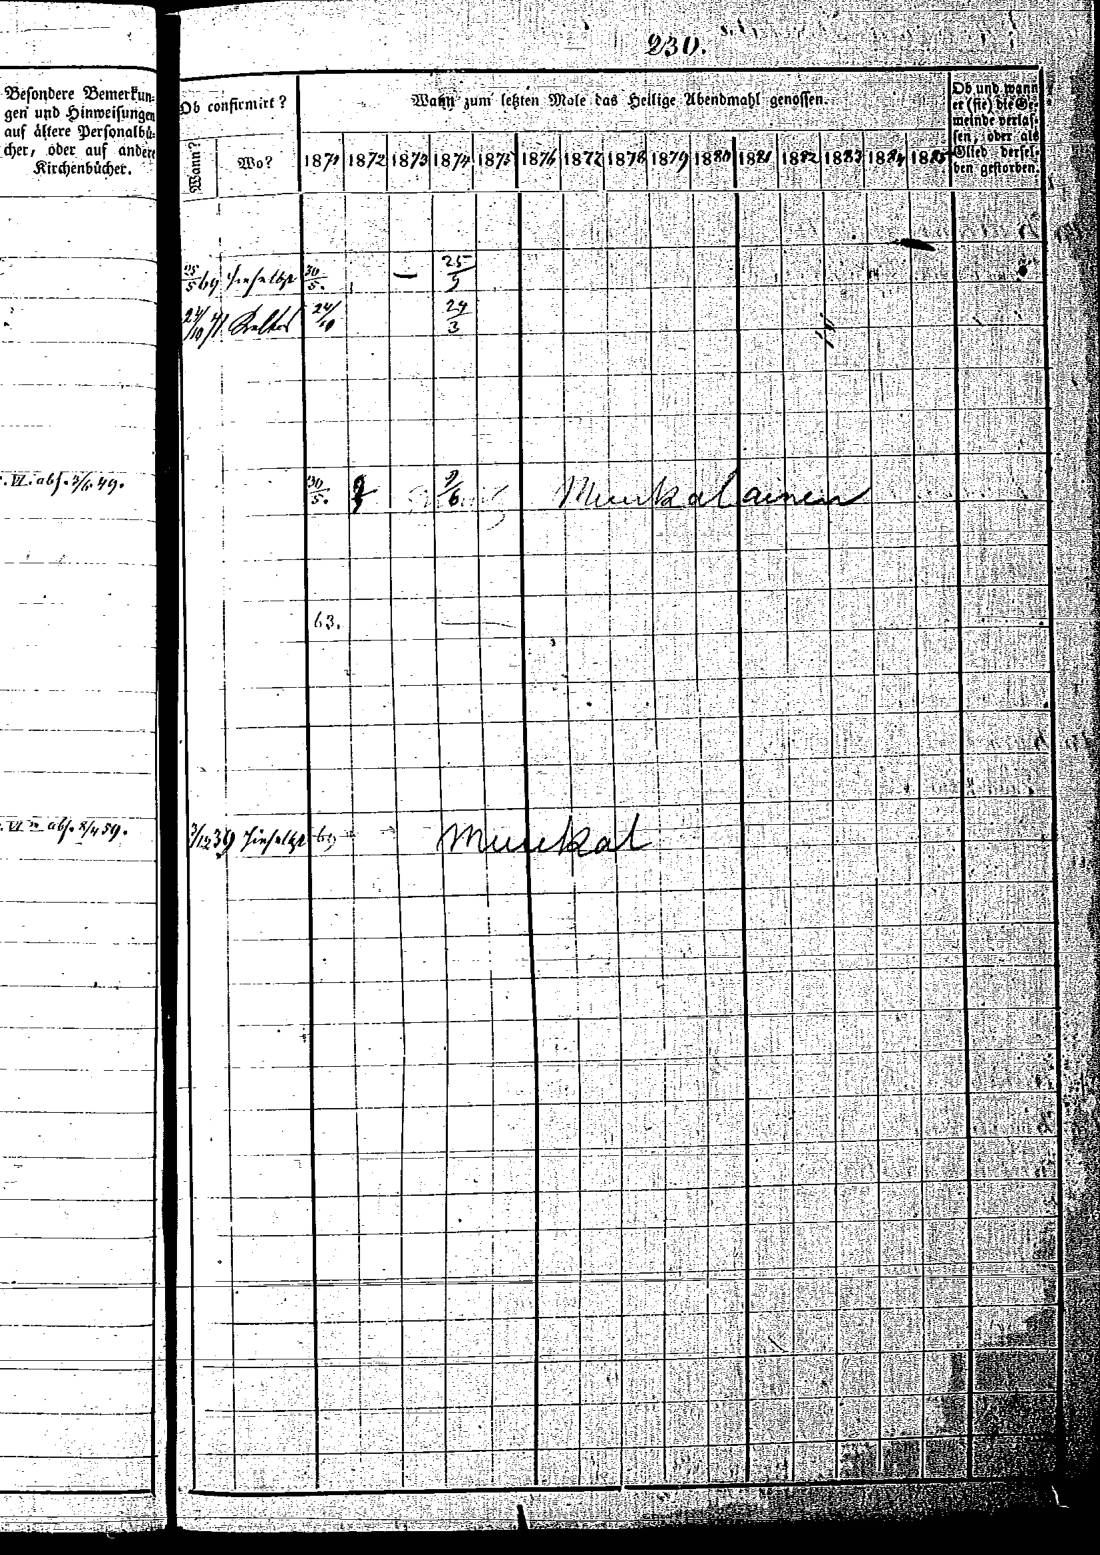 230.
Besondere Bemerkun-
gen und Hinweisungen
auf ältere Personalbü-
cher, oder auf andere
Kirchenbücher.
Ob confirmirt?
Wann?
Wo?
Wann zum letzten Male das Heilige Abendmahl genossen.
1871 1872 1873 1874 1875 1876 1877 1878 1879 1880 1881 1882 1883 1884 1885
Ob und wann
er (sie) die Ge-
meinde verlas-
sen, oder als
Glied dersel-
ben gestorben.
25/5 69 30/5. — 25/5
24/10 71 24/10 24/3
30/5. 9/6 Munkalainen
63.
39 Munkal